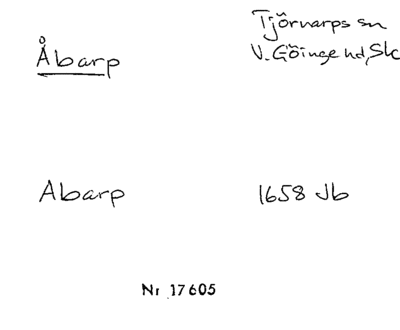 Åbarp
Tjörnarps sn
V. Göinge hd, Sk
Abarp
1658 Jb
Nr 17605